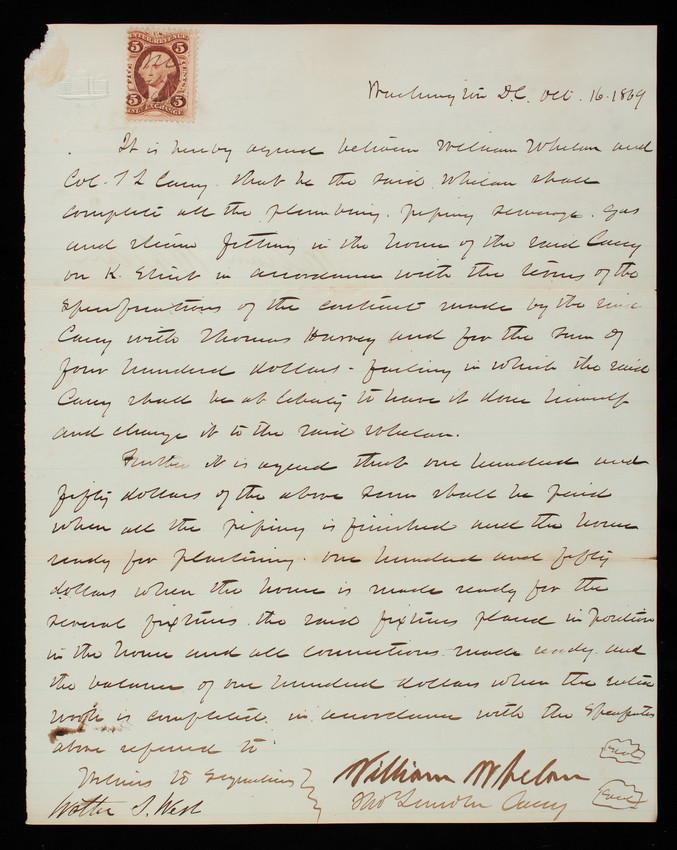 5 U.S. INTER. REV. 5
FIVE CENTS
5 INTR EXCHANGE 5
Washington D.C. Oct. 16. 1869
It is hereby agreed between William Whelan and
Col. T L Casey that he the said Whelan shall
complete all the plumbing, piping sewerage, gas
and steam fitting in the house of the said Casey
on K. Street in accordance with the terms of the
specifications of the contract made by the said
Casey with Thomas Harvey and for the sum of
four hundred dollars - failing in which the said
Casey shall be at liberty to have it done himself
and charge it to the said Whelan.
Further it is agreed that one hundred and
fifty dollars of the above sum shall be paid
when all the piping is finished and the house
ready for plastering. one hundred and fifty
dollars when the house is made ready for the
several fixtures. the said fixtures placed in position
in the house and all connections made ready and
the balance of one hundred dollars when the entire
work is completed in accordance with the Specifications
above referred to
Witness to Signatures
William Whelan
Seal
Walter S. West
Thos Lincoln Casey
Seal